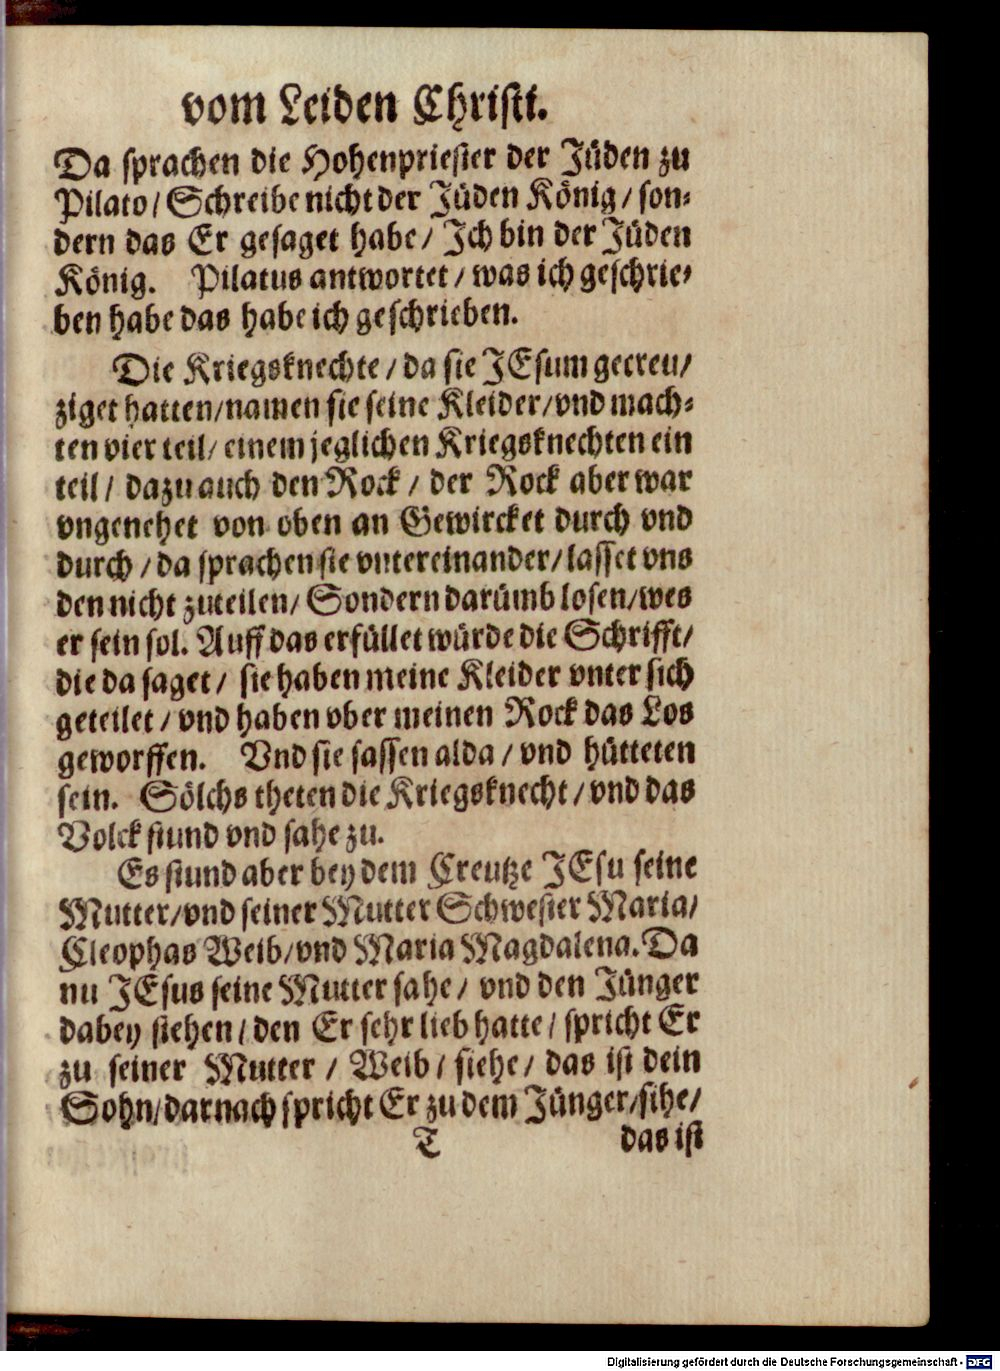 vom Leiden Christi.
Da sprachen die Hohenpriester der Jüden zu
Pilato / Schreibe nicht der Jüden König / son-
dern das Er gesaget habe / Ich bin der Jüden
König. Pilatus antwortet / was ich geschrie-
ben habe das habe ich geschrieben.
Die Kriegsknechte / da sie JEsum gecreu/
ziget hatten / namen sie seine Kleider / vnd mach-
ten vier teil / einem jeglichen Kriegsknechten ein
teil / dazu auch den Rock / der Rock aber war
vngenehet von oben an Gewircket durch vnd
durch / da sprachen sie vntereinander / lasset vns
den nicht zuteilen / Sondern darümb losen / wes
er sein sol. Auff das erfüllet würde die Schrifft /
die da saget / sie haben meine Kleider vnter sich
geteilet / vnd haben vber meinen Rock das Los
geworffen. Vnd sie sassen alda / vnd hütteten
sein. Sölchs theten die Kriegsknecht / vnd das
Volck stund vnd sahe zu.
Es stund aber bey dem Creutze JEsu seine
Mutter / vnd seiner Mutter Schwester Maria /
Cleophas Weib / vnd Maria Magdalena. Da
nu JEsus seine Mutter sahe / vnd den Jünger
dabey stehen / den Er sehr lieb hatte / spricht Er
zu seiner Mutter / Weib / siehe / das ist dein
Sohn / darnach spricht Er zu dem Jünger / sihe /
T das ist
Digitalisierung gefördert durch die Deutsche Forschungsgemeinschaft - DFG